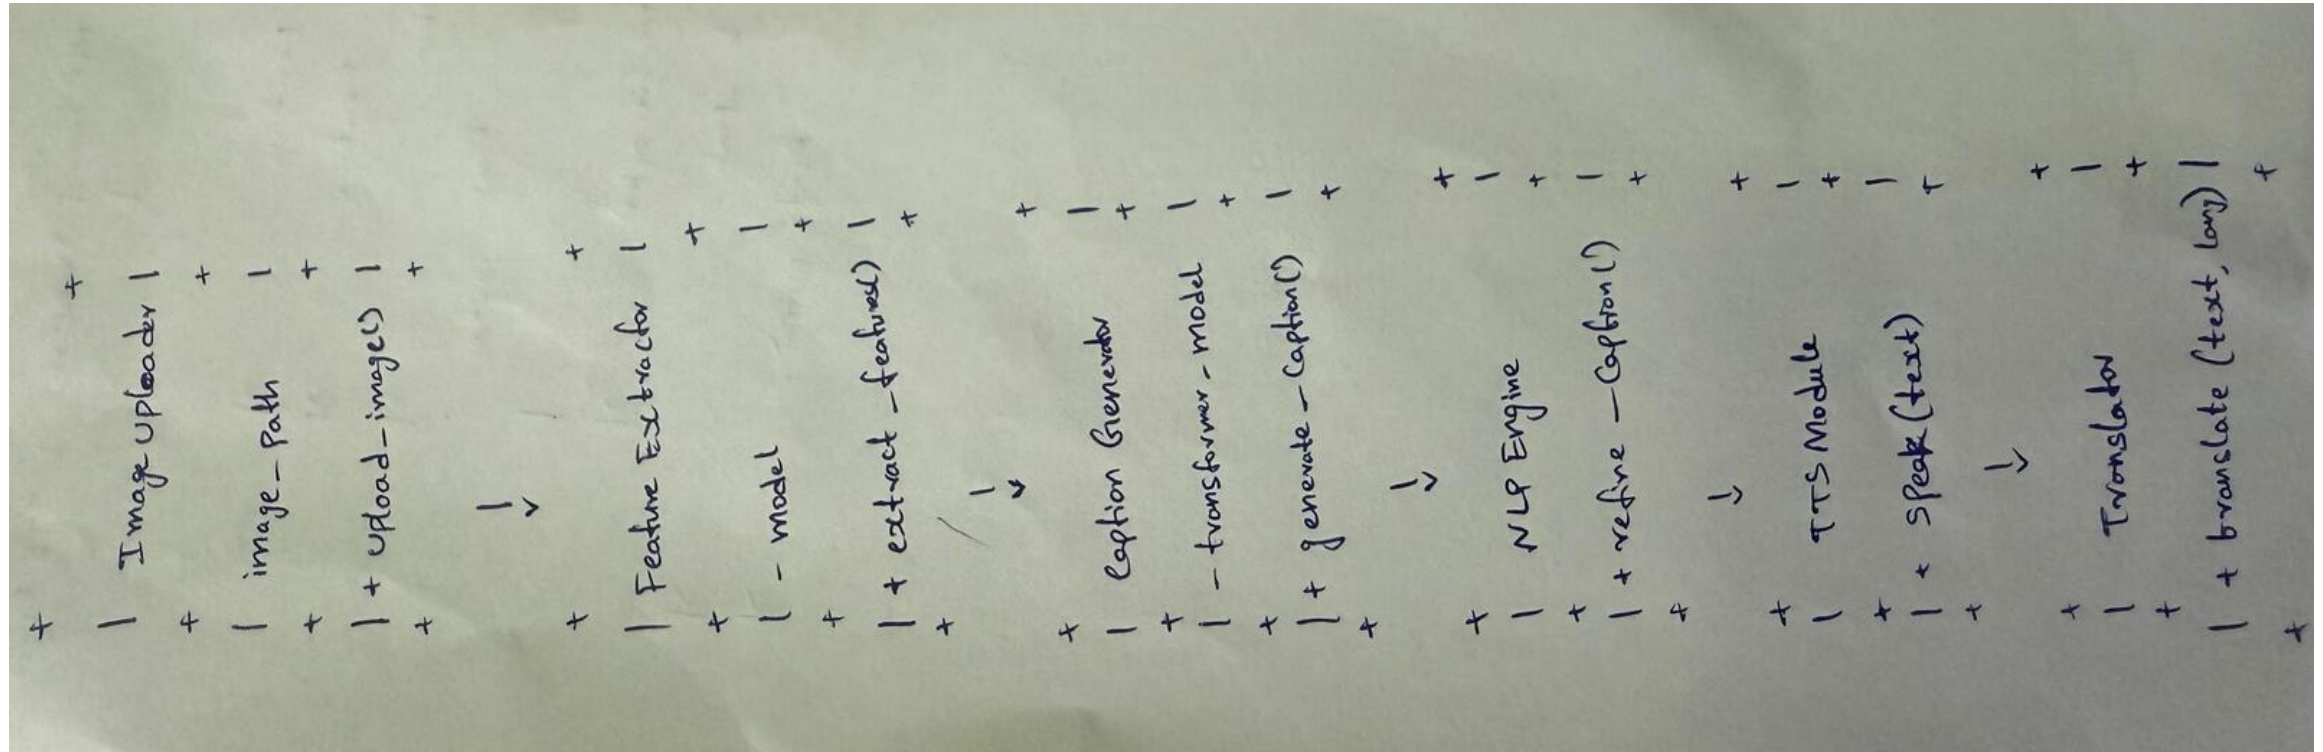 + +
| Image Uploader |
+ +
| image_Path |
+ +
| + upload_image() |
+ +
|
v
+ +
| Feature Extractor |
+ +
| - model |
+ +
| + extract_features() |
+ +
|
v
+ +
| Caption Generator |
+ +
| - transformer_model |
+ +
| + generate_Caption() |
+ +
|
v
+ +
| NLP Engine |
+ +
| + refine_Caption() |
+ +
|
v
+ +
| TTS Module |
+ +
| + Speak(text) |
+ +
|
v
+ +
| Translator |
+ +
| + translate (text, lang) |
+ +